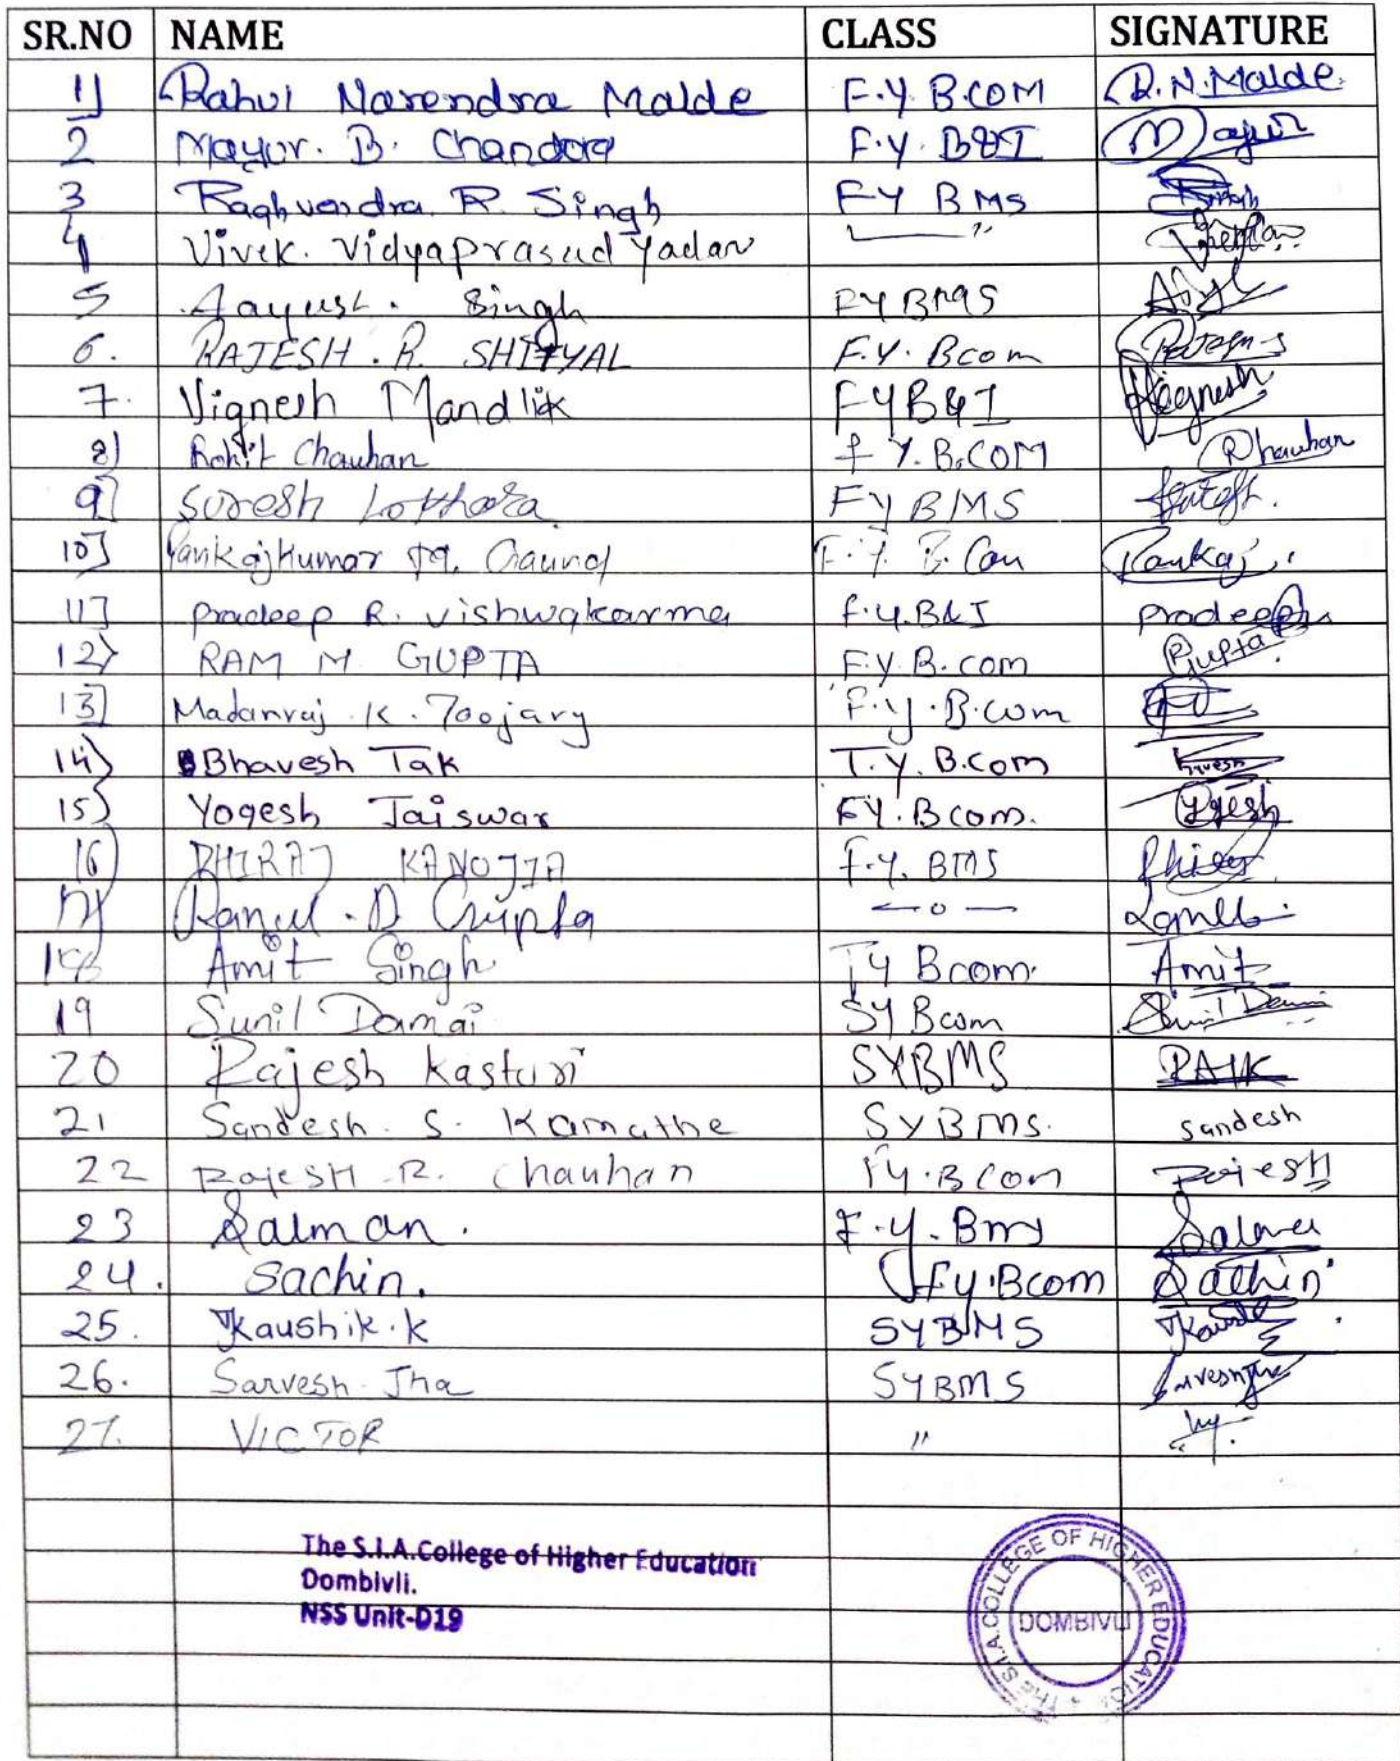 SR.NO NAME CLASS SIGNATURE
1] Rahul Narendra Malde F.Y B.COM R.N.Malde
2 Mayur. B. Chandora F.Y. B&I Mayur
3 Raghvendra R. Singh FY BMS Singh
4 Vivek. Vidyaprasad Yadav "
5 Aayush. Singh FY BMS
6. RAJESH. R. SHITYAL F.Y. Bcom Rajesh
7. Vignesh Mandlik FYB&I Vignesh
8) Rohit Chauhan F Y. B.COM RChauhan
9] Suresh FY BMS
10] Pankajkumar Gaund F.Y. B.Com Pankaj.
11] Pradeep R. Vishwakarma F.Y.B&I Pradeep
12) RAM M GUPTA F.Y.B.com RGupta
13] Madanraj .K. Poojary F.Y.B.com
14) Bhavesh Tak T.Y.B.com
15) Yogesh Jaiswar FY.Bcom. Yogesh
16) DHIRAJ KANOJIA F.Y. BMS Dhiraj
17) D. Gupta —0—
18) Amit Singh TY Bcom. Amit
19 Sunil Damai SY Bcom Sunil Damai
20 Rajesh Kasturi SYBMS RAJK
21 Sandesh. S. Kamathe SYBMS. Sandesh
22 Rajesh .R. Chauhan FY.BCom Rajesh
23 Salman. F.Y.Bms Salman
24. Sachin. FY.Bcom Sachin
25. Kaushik.k SYBMS
26. Sarvesh Jha SYBMS Sarveshjha
27. VICTOR "
The S.I.A.College of Higher Education
Dombivli.
NSS Unit-D19
THE S.I.A. COLLEGE OF HIGHER EDUCATION
DOMBIVLI